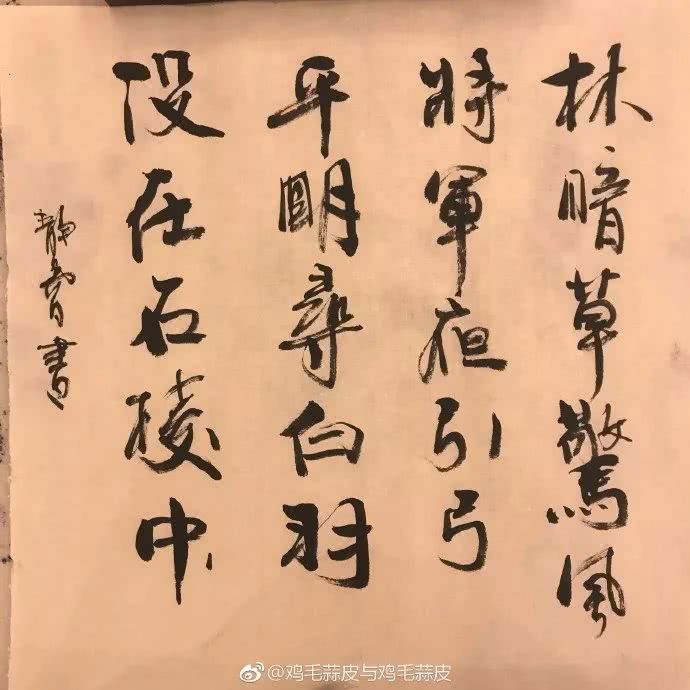 林暗草驚風
將軍夜引弓
平明尋白羽
没在石棱中
靜霄書
@鸡毛蒜皮与鸡毛蒜皮